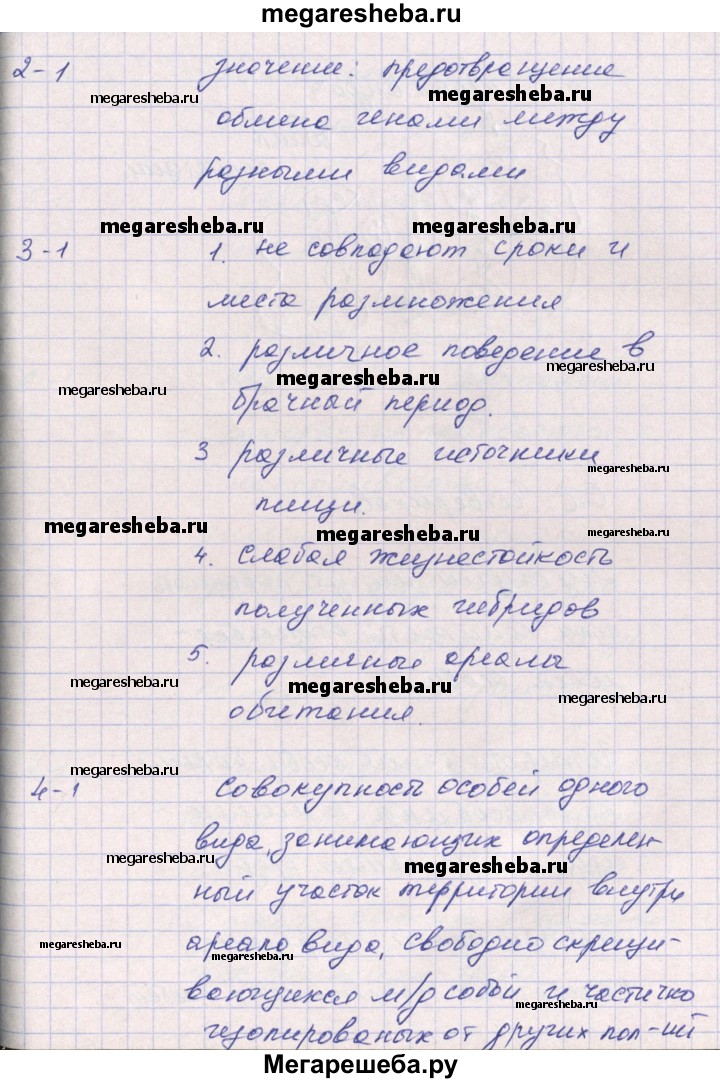 megaresheba.ru
2-1 значение: предотвращение
megaresheba.ru megaresheba.ru
обмена генами между
разными видами
megaresheba.ru megaresheba.ru
3-1 1. не совпадают сроки и
места размножения
2. различное поведение в
megaresheba.ru megaresheba.ru megaresheba.ru
брачный период.
3 различные источники
megaresheba.ru
пищи.
megaresheba.ru megaresheba.ru
4. слабая жизнестойкость
полученных гибридов
5. различные ареалы
megaresheba.ru megaresheba.ru megaresheba.ru
обитания.
megaresheba.ru
4-1 совокупность особей одного
вида, занимающих определен-
megaresheba.ru megaresheba.ru
ный участок территории внутри
ареала вида, свободно скрещи-
megaresheba.ru megaresheba.ru
вающихся м/д собой и частично
megaresheba.ru
изолированых от других поп-ий
Мегарешеба.ру